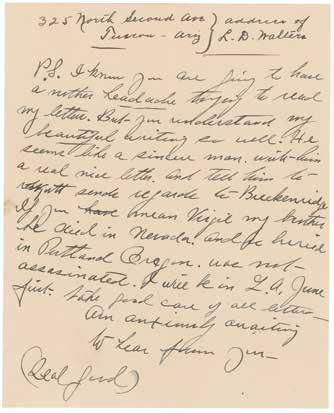 325 North Second Ave } address of
Tuscon - ariz } L. D. Walters
P.S. I know you are going to have
a nother headache trying to read
my letter. But you understand my
beautiful writing so well. He
seems like a sincere man. write him
a real nice letter and tell him to
send regards to Breckenridge
If you have mean Virgil my brother
he Died in Nevada. and is buried
in Portland Oregon. was not
assasinated. I will be in L.A. June
first. take good care of all letters
am anxiously awaiting
to hear from you -
(Real good)